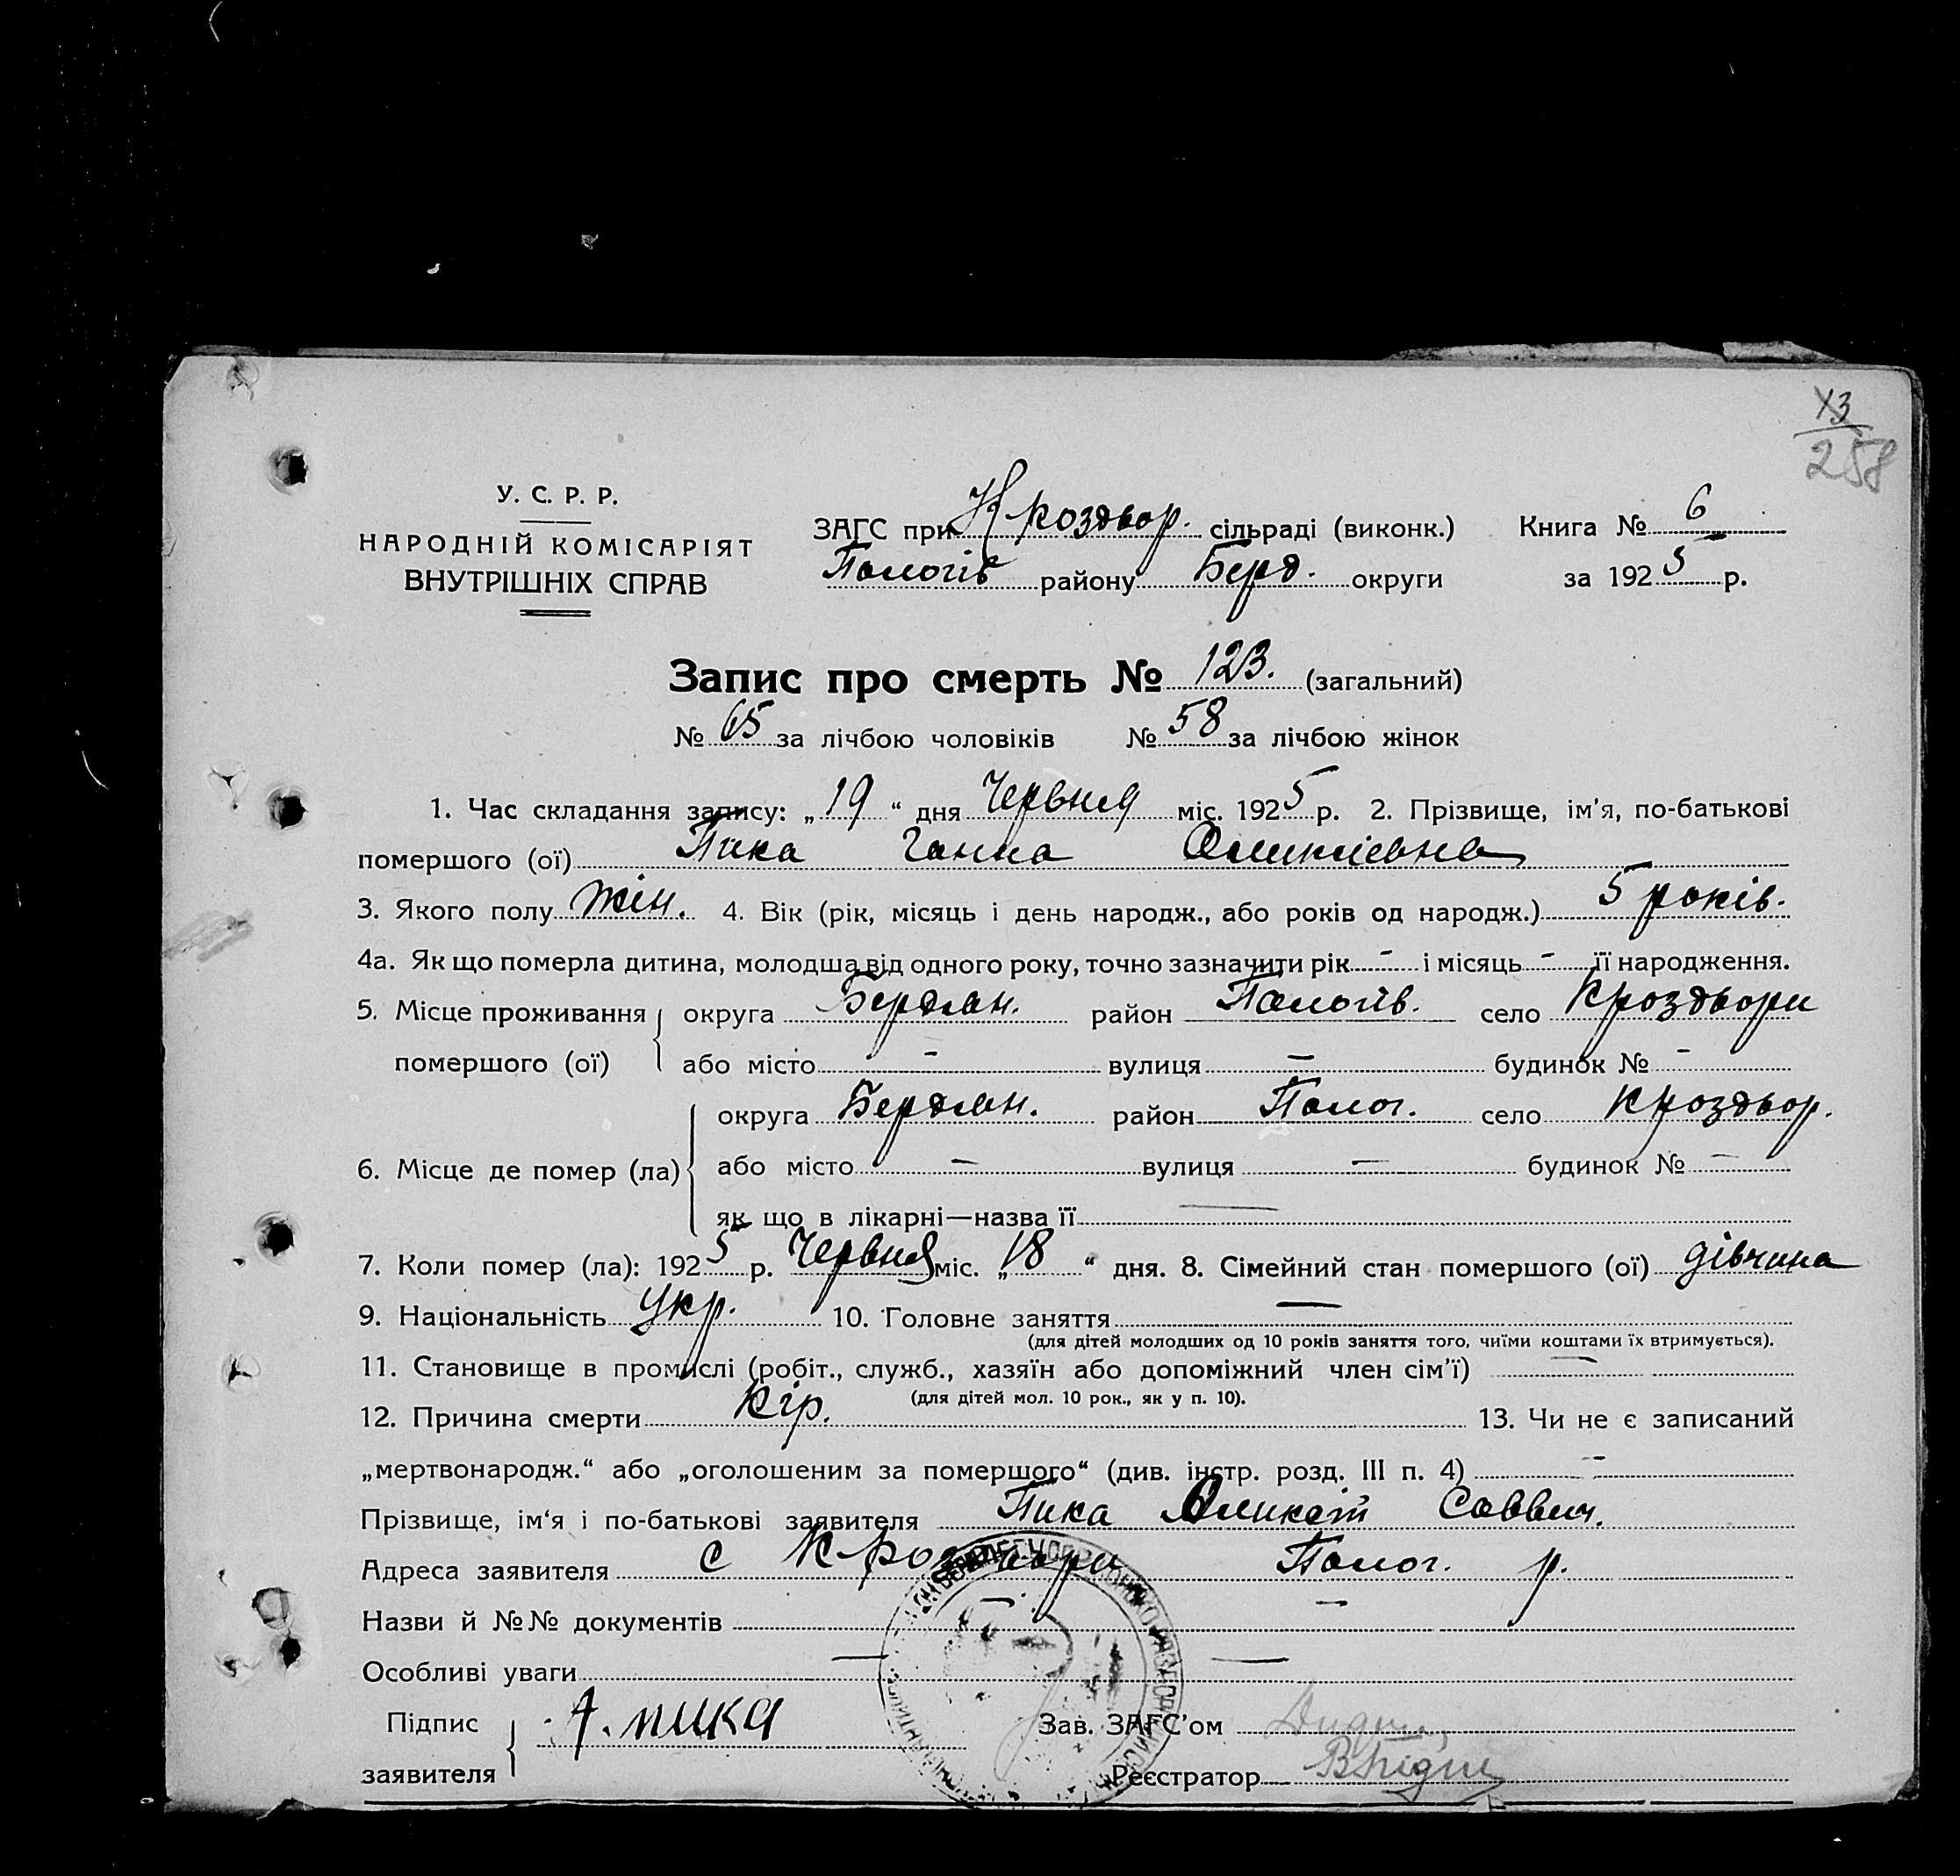 13
258
У. С. Р. Р.
НАРОДНІЙ КОМІСАРІЯТ
ВНУТРІШНІХ СПРАВ
ЗАГС при Кроздвор. сільраді (виконк.) Книга № 6
Пологів району Берд. округи за 1925 р.
Запис про смерть № 123. (загальний)
№ 65 за лічбою чоловіків № 58 за лічбою жінок
1. Час складання запису: „19“ дня Червня міс. 1925 р. 2. Прізвище, ім'я, по-батькові
помершого (ої) Пика Ганна
3. Якого полу жін. 4. Вік (рік, місяць і день народж., або років од народж.) 5 років.
4а. Як що померла дитина, молодша від одного року, точно зазначити рік - і місяць - її народження.
5. Місце проживання округа Бердян. район Пологів. село Кроздвори
помершого (ої) або місто - вулиця - будинок № -
округа Бердян. район Полог. село Кроздвор.
6. Місце де помер (ла) або місто - вулиця - будинок № -
як що в лікарні—назва її —
7. Коли помер (ла): 1925 р. Червня міс. „18“ дня. 8. Сімейний стан помершого (ої) дівчина
9. Національність Укр. 10. Головне заняття —
(для дітей молодших од 10 років заняття того, чиїми коштами їх втримується).
11. Становище в промислі (робіт., служб., хазяїн або допоміжний член сім'ї) —
(для дітей мол. 10 рок., як у п. 10).
12. Причина смерти Кір. 13. Чи не є записаний
„мертвонародж.“ або „оголошеним за помершого“ (див. інстр. розд. III п. 4) -
Прізвище, ім'я і по-батькові заявителя Пика Саввич.
Адреса заявителя с Кроздвори Полог. р.
Назви й №№ документів — —
Особливі уваги — —
Підпис А. пика Зав. ЗАГС'ом
заявителя Реєстратор